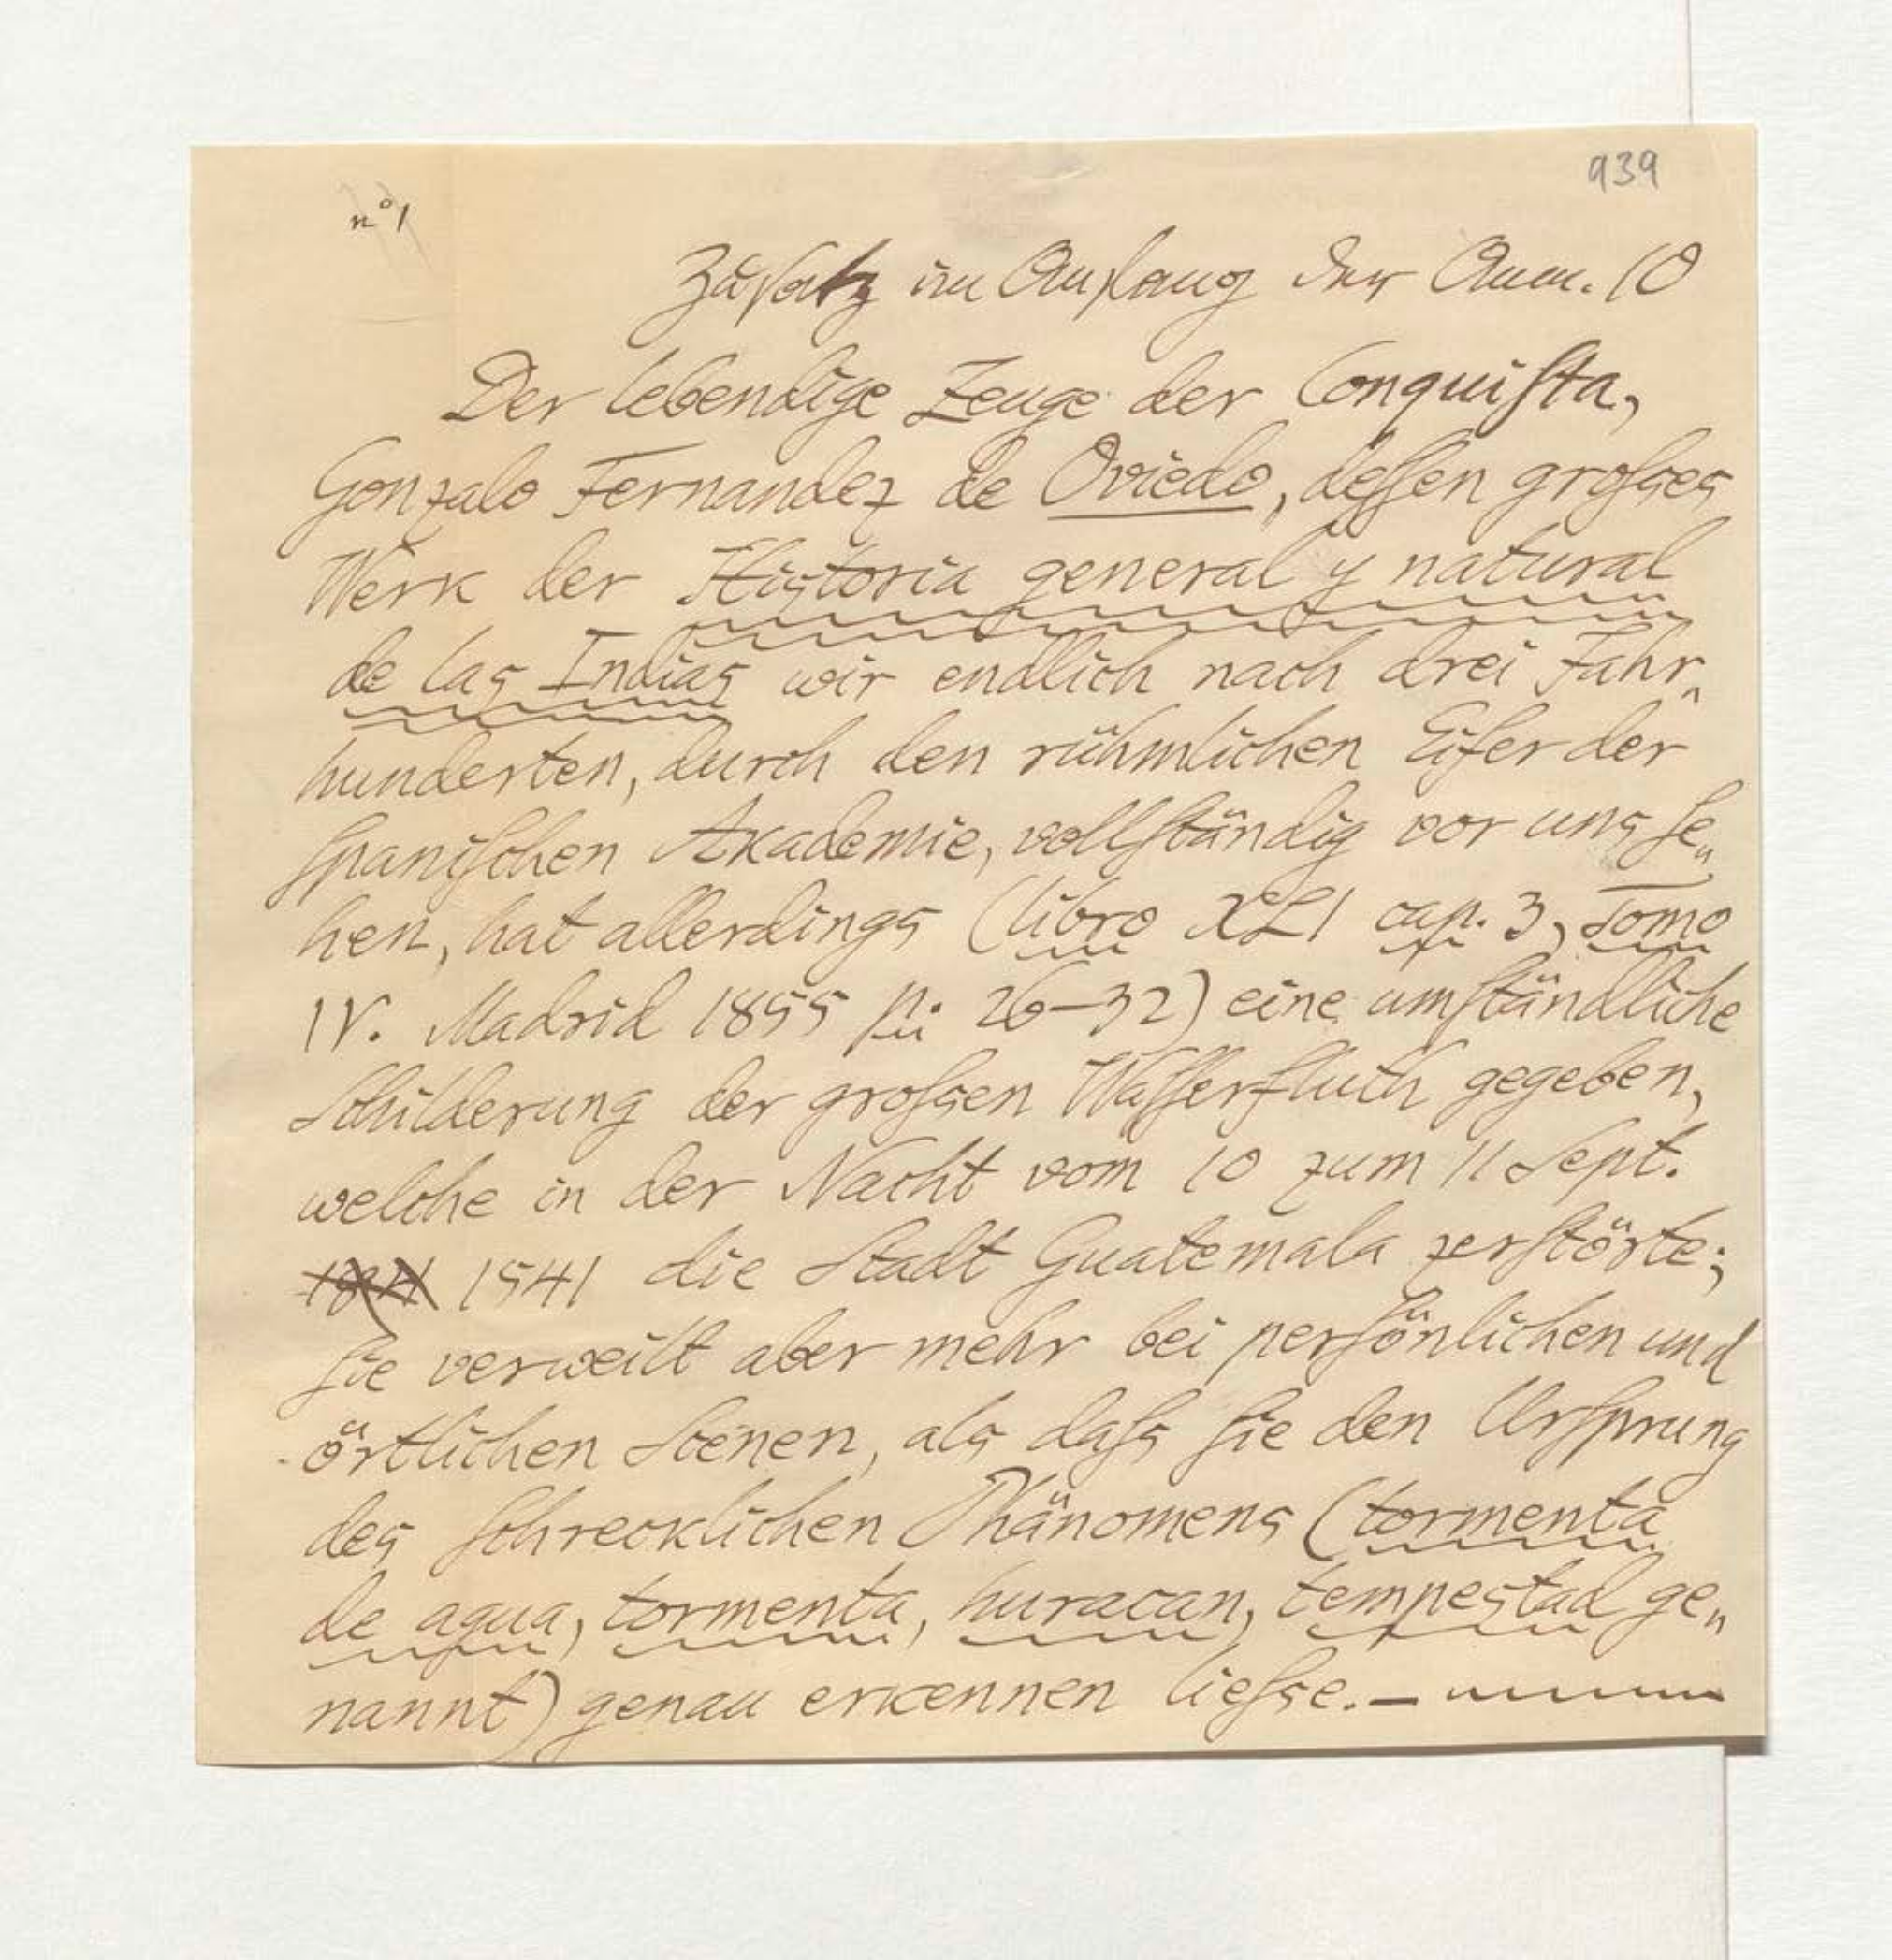 939
n° 1
Zusatz im Anfang der Anm. 10
Der lebendige Zeuge der Conquista,
Gonzalo Fernandez de Oviedo, dessen grosses
Werk der Historia general y natural
de las Indias wir endlich nach drei Jahr-
hunderten, durch den rühmlichen Eifer der
spanischen Akademie, vollständig vor uns se-
hen, hat allerdings (libro XLI cap. 3, Tomo
IV. Madrid 1855 p. 26–32) eine umständliche
Schilderung der grossen Wasserfluth gegeben,
welche in der Nacht vom 10 zum 11 Sept.
1541 die Stadt Guatemala zerstörte;
sie verweilt aber mehr bei persönlichen und
örtlichen Scenen, als dass sie den Ursprung
des schrecklichen Phänomens (tormenta
de agua, tormenta, huracan, tempestad ge-
nannt) genau erkennen liesse. –